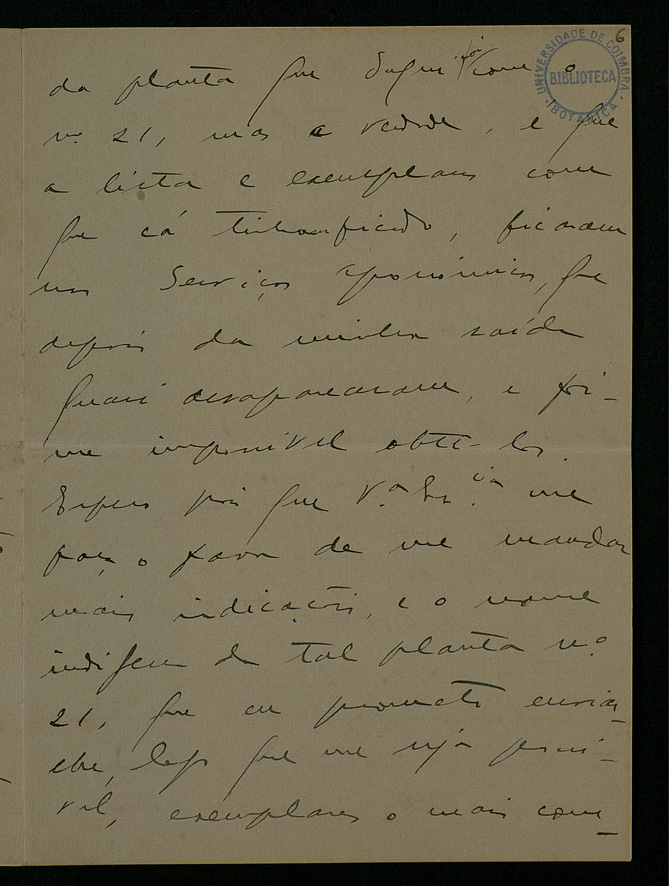 6
UNIVERSIDADE DE COIMBRA
BIBLIOTECA
BOTANICA
da planta que foi com o
nº 21, mas a verdade, é que
a lista e exemplares com
que cá tinha ficado, ficaram
nos Serviços Agronomicos, que
depois da minha saída
quasi desapareceram, e foi-
me impossivel obte-los.
Espero pois que V.ª Ex.cia me
faça o favor de me mandar
mais indicações, e o nome
indigena da tal planta nº
21, que eu prometo enviar-
lhe, logo que me seja possi-
vel, exemplares o mais com-